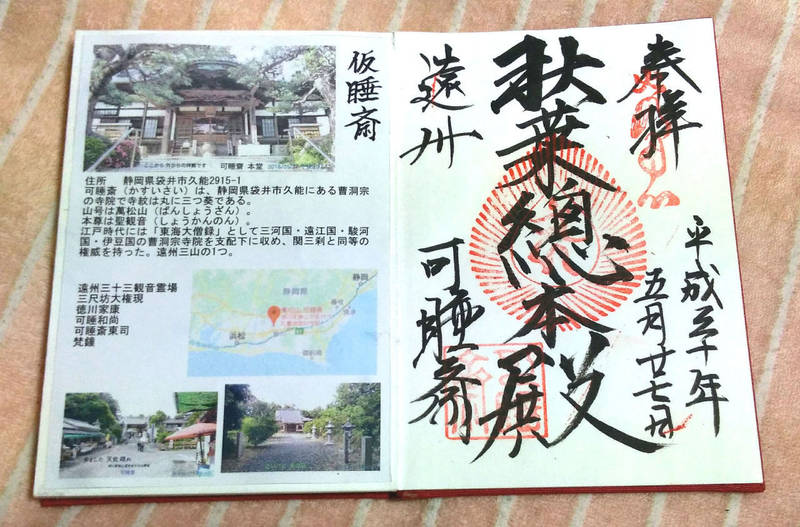 仮睡斎
ここから 外からの拝観です
可睡斎 本堂
住所　静岡県袋井市久能2915-1
可睡斎（かすいさい）は、静岡県袋井市久能にある曹洞宗
の寺院で寺紋は丸に三つ葵である。
山号は萬松山（ばんしょうざん）。
本尊は聖観音（しょうかんのん）。
江戸時代には「東海大僧録」として三河国・遠江国・駿河
国・伊豆国の曹洞宗寺院を支配下に収め、関三刹と同等の
権威を持った。遠州三山の1つ。
遠州三十三観音霊場
三尺坊大権現
徳川家康
可睡和尚
可睡斎東司
梵鐘
静岡県
静岡
浜松
可睡斎
奉拝
平成三十年
五月廿七日
秋葉總本殿
遠州
可睡斎